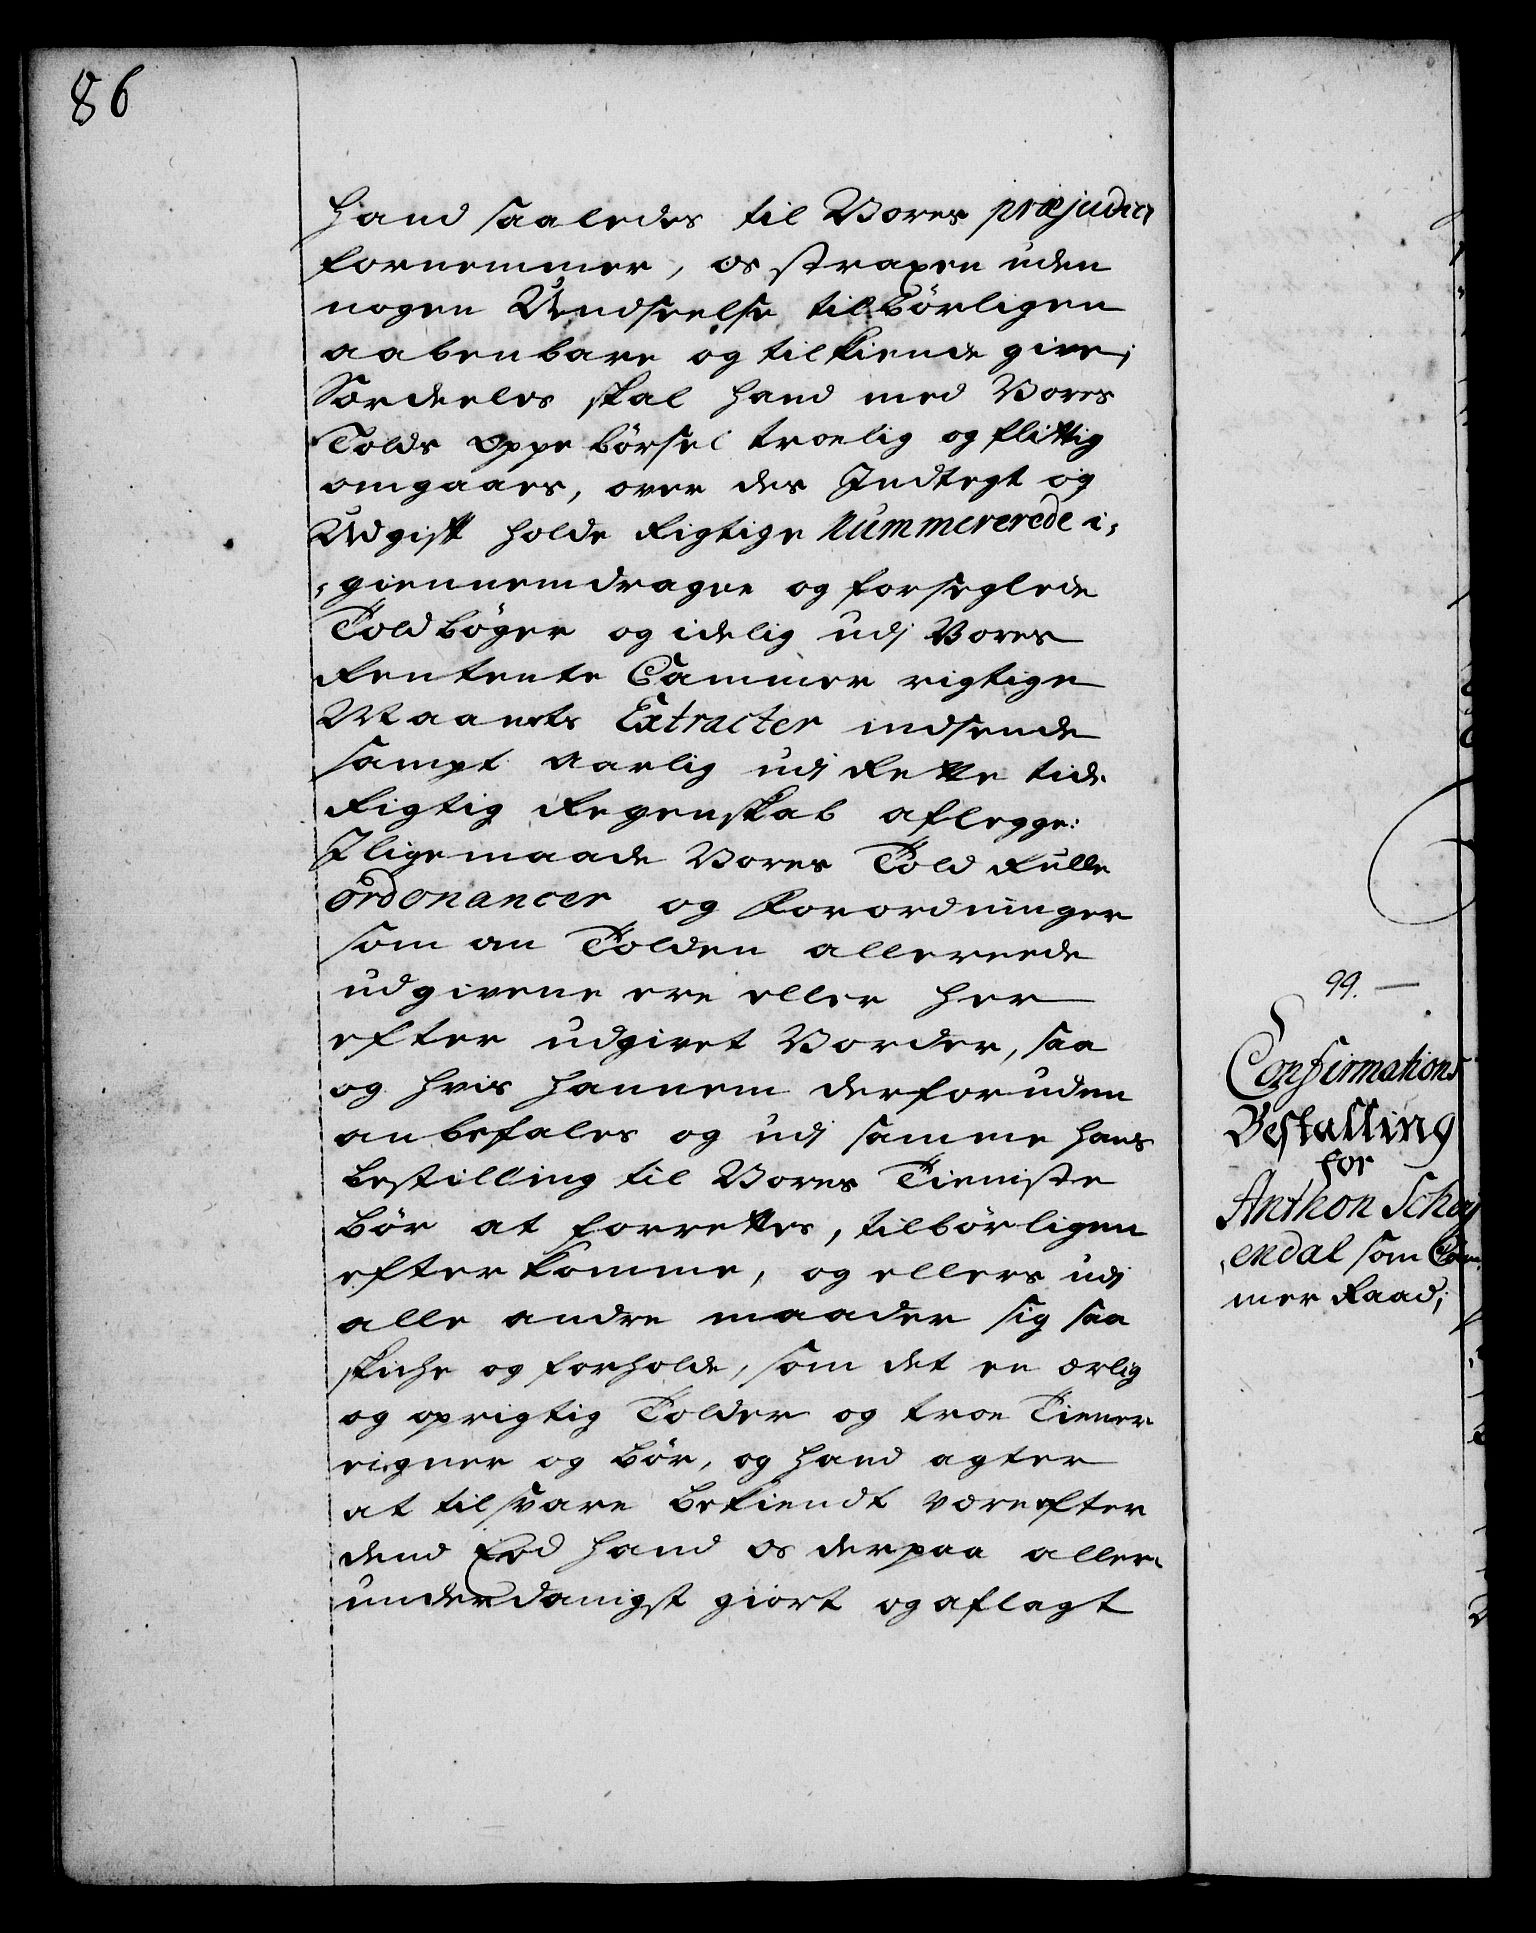 86
hand saaledes til Vores præjudice
fornemmer, os straxen uden
nogen Undseelse tilbörligen
aabenbare og tilkiende give;
Særdeles skal hand med Vores
Tolds Oppebörsel troelig og flittig
omgaaes, over des Indtegt og
Udgift holde Rigtige Nummererede i-
-giennemdragne og forseglede
Toldböger og idelig udj Vores
Rentente Cammer rigtige
Maanets Extracter indsende
sampt aarlig udj Rette tide
Rigtig Regenskab aflegge:
Iligemaade Vores Told Rulle
ordonancer og Forordninger
som om Tolden allereede
udgivene ere eller her
efter udgivet Vorder, saa
og hvis hannem derforuden
anbefales og udj samme hans
bestilling til Vores Tieniste
bör at forrettes, tilbörligen
efterkomme, og ellers udj
alle andre maader sig saa
skiche og forholde, som det en ærlig
og oprigtig Tolder og troe Tiener
eigner og bör, og hand agter
at tilsvare bekiendt være efter
dend Eed hand os derpaa aller-
underdanigst giort og aflagt
99.
Confirmations
Bestalling
for
Anthon Schøy
-endal som Cam-
mer Raad;